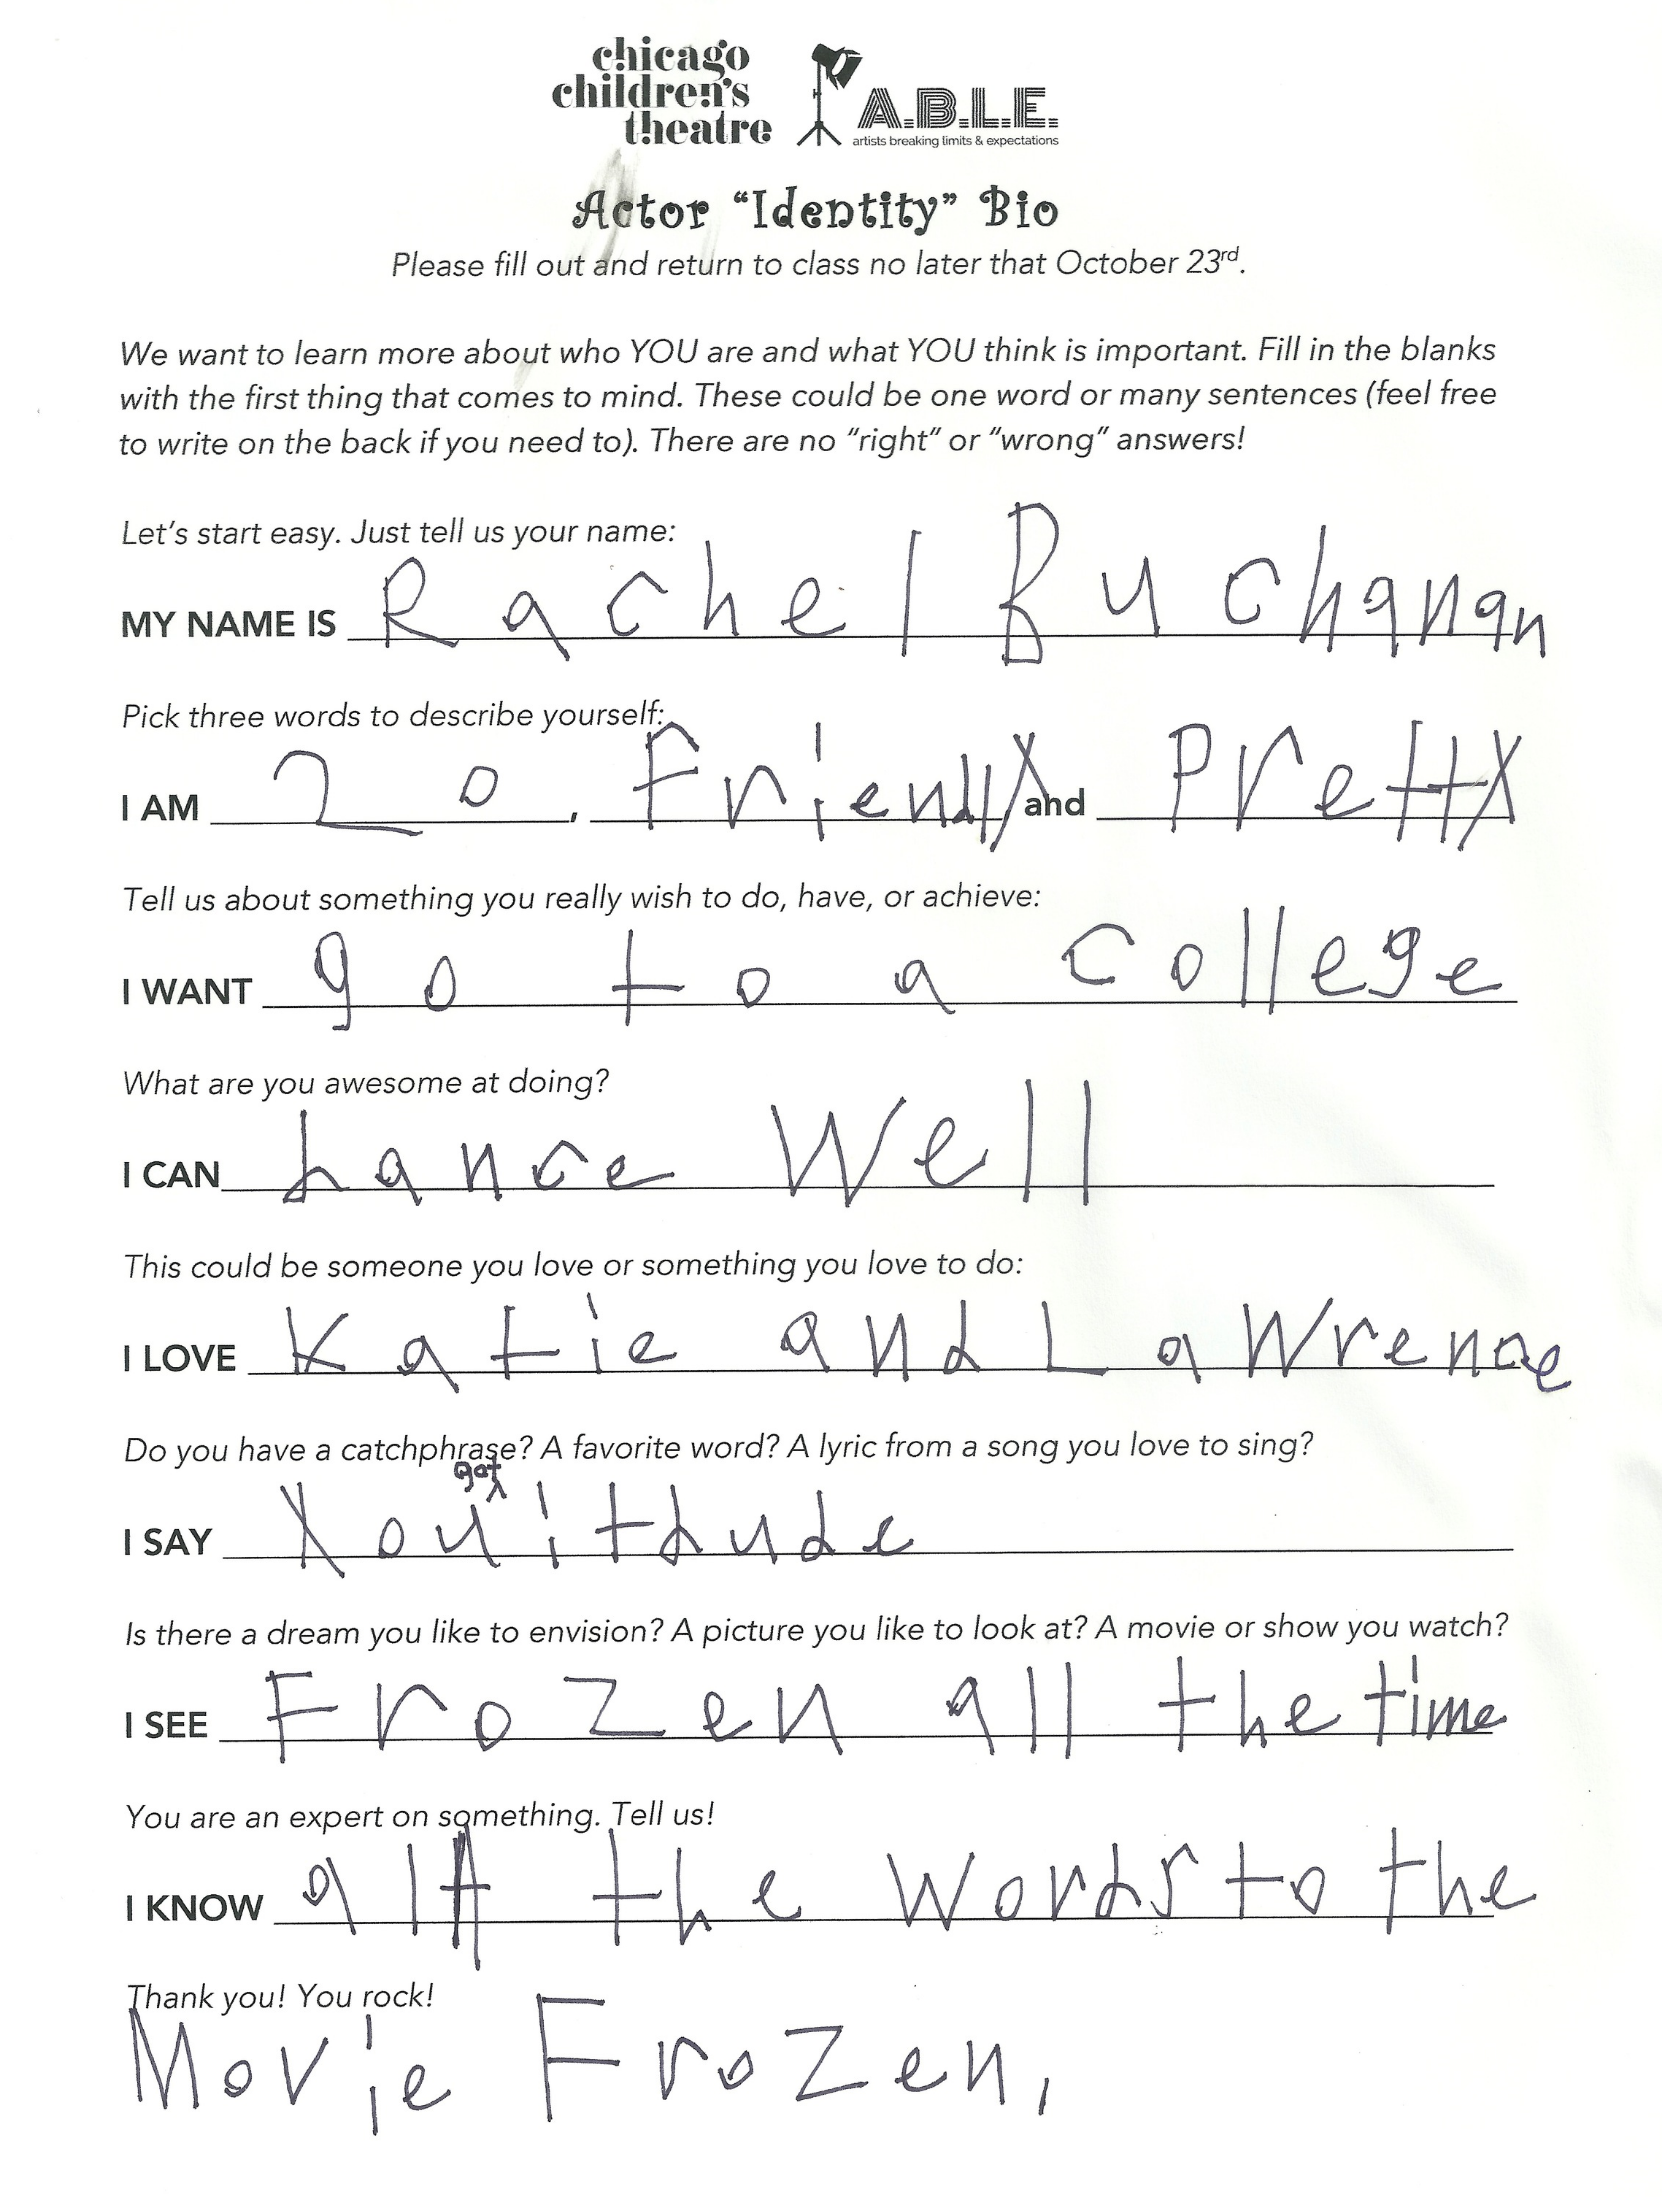 chicago
children's
theatre
A.B.L.E.
artists breaking limits & expectations
Actor “Identity” Bio
Please fill out and return to class no later that October 23rd.
We want to learn more about who YOU are and what YOU think is important. Fill in the blanks
with the first thing that comes to mind. These could be one word or many sentences (feel free
to write on the back if you need to). There are no “right” or “wrong” answers!
Let's start easy. Just tell us your name:
MY NAME IS Rachel Buchanan
Pick three words to describe yourself:
I AM 20, Friendly and Pretty
Tell us about something you really wish to do, have, or achieve:
I WANT go to a college
What are you awesome at doing?
I CAN dance Well
This could be someone you love or something you love to do:
I LOVE Katie and Lawrence
Do you have a catchphrase? A favorite word? A lyric from a song you love to sing?
got
I SAY You it dude
Is there a dream you like to envision? A picture you like to look at? A movie or show you watch?
I SEE Frozen all the time
You are an expert on something. Tell us!
I KNOW all the words to the
Thank you! You rock!
Movie Frozen,